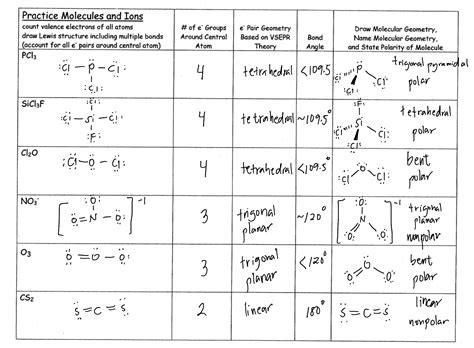 Practice Molecules and Ions
count valence electrons of all atoms
draw Lewis structure including multiple bonds
(account for all e⁻ pairs around central atom)
# of e⁻ Groups
Around Central
Atom
e⁻ Pair Geometry
Based on VSEPR
Theory
Bond
Angle
Draw Molecular Geometry,
Name Molecular Geometry,
and State Polarity of Molecule
PCl₃
Cl — P — Cl
Cl
4
tetrahedral
<109.5
P
Cl Cl Cl
trigonal pyramidal
polar
SiCl₃F
Cl
Cl — Si — Cl
F
4
tetrahedral
~109.5°
F
Si
Cl Cl Cl
tetrahedral
polar
Cl₂O
Cl — O — Cl
4
tetrahedral
<109.5°
O
Cl Cl
bent
polar
NO₃⁻
O
O = N — O
-1
3
trigonal
planar
~120°
O
N
O O
-1
trigonal
planar
nonpolar
O₃
O = O — O
3
trigonal
planar
<120°
O
O O
bent
polar
CS₂
S = C = S
2
linear
180°
S = C = S
linear
nonpolar